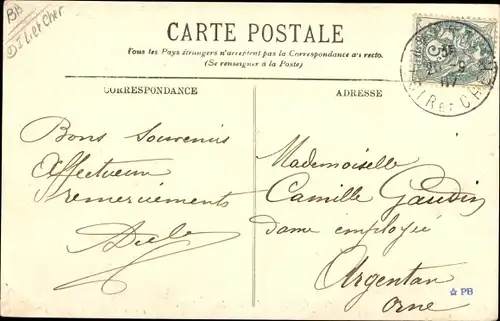 BB
I Let Cher
CARTE POSTALE
Tous les Pays étrangers n'acceptent pas la Correspondance au recto.
(Se renseigner à la Poste)
CORRESPONDANCE
ADRESSE
Bons Souvenirs
Affectueux
remerciements
Adele
Mademoiselle
Camille Gaudin
dame employée
Argentan
Orne
IR et CHER
07
PB